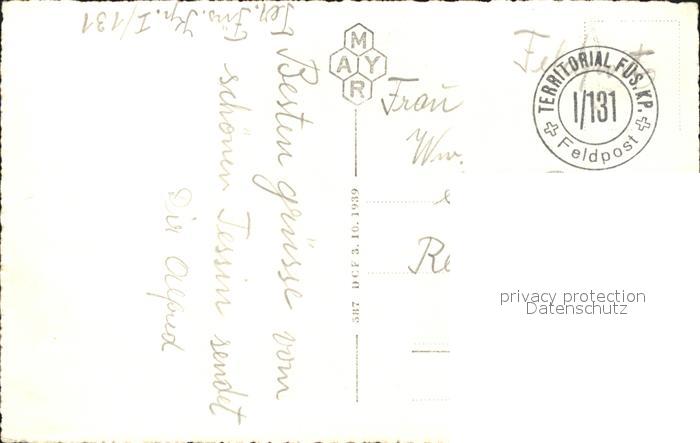 Ter. Füs. Kp. I/131
Besten grüsse vom
schönen Tessin sendet
Dir Alfred
MAYR
387 DCF 3.10.1939
Feldpost
TERRITORIAL.FÜS.KP.
I/131
Feldpost
Frau
privacy protection
Datenschutz